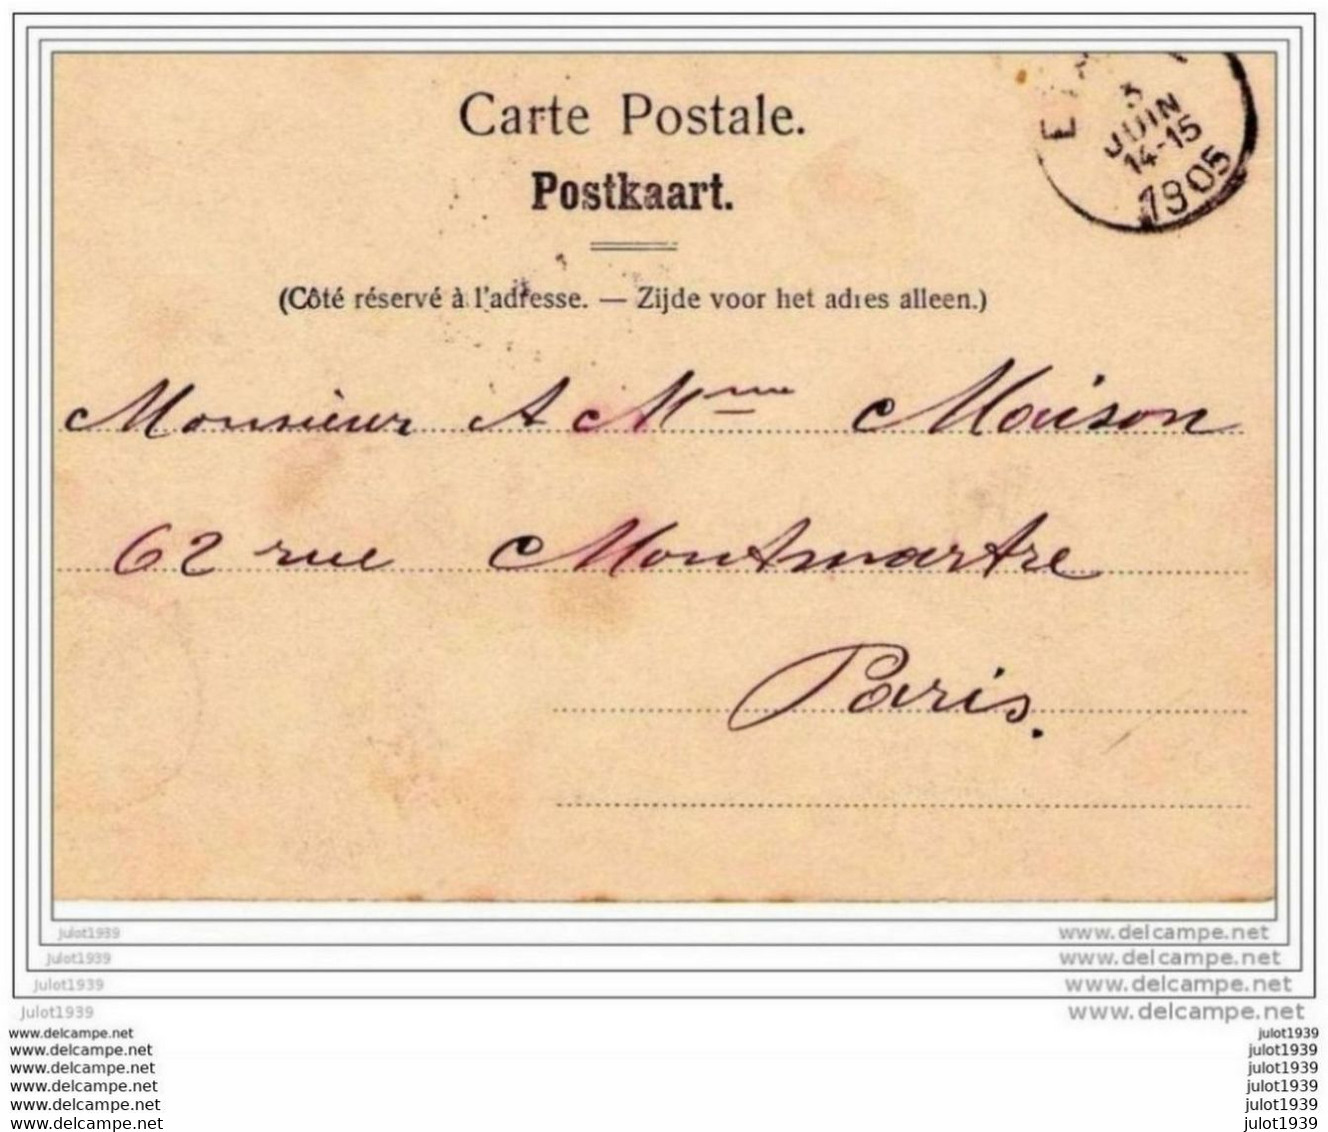 Carte Postale.
Postkaart.
3
JUIN
14-15
1905
(Côté réservé à l'adresse. — Zijde voor het adres alleen.)
Monsieur A Mme Maison
62 rue Montmartre
Paris.
julot1939 www.delcampe.net
julot1939 www.delcampe.net
julot1939 www.delcampe.net
julot1939 www.delcampe.net
www.delcampe.net julot1939
www.delcampe.net julot1939
www.delcampe.net julot1939
www.delcampe.net julot1939
www.delcampe.net julot1939
www.delcampe.net julot1939